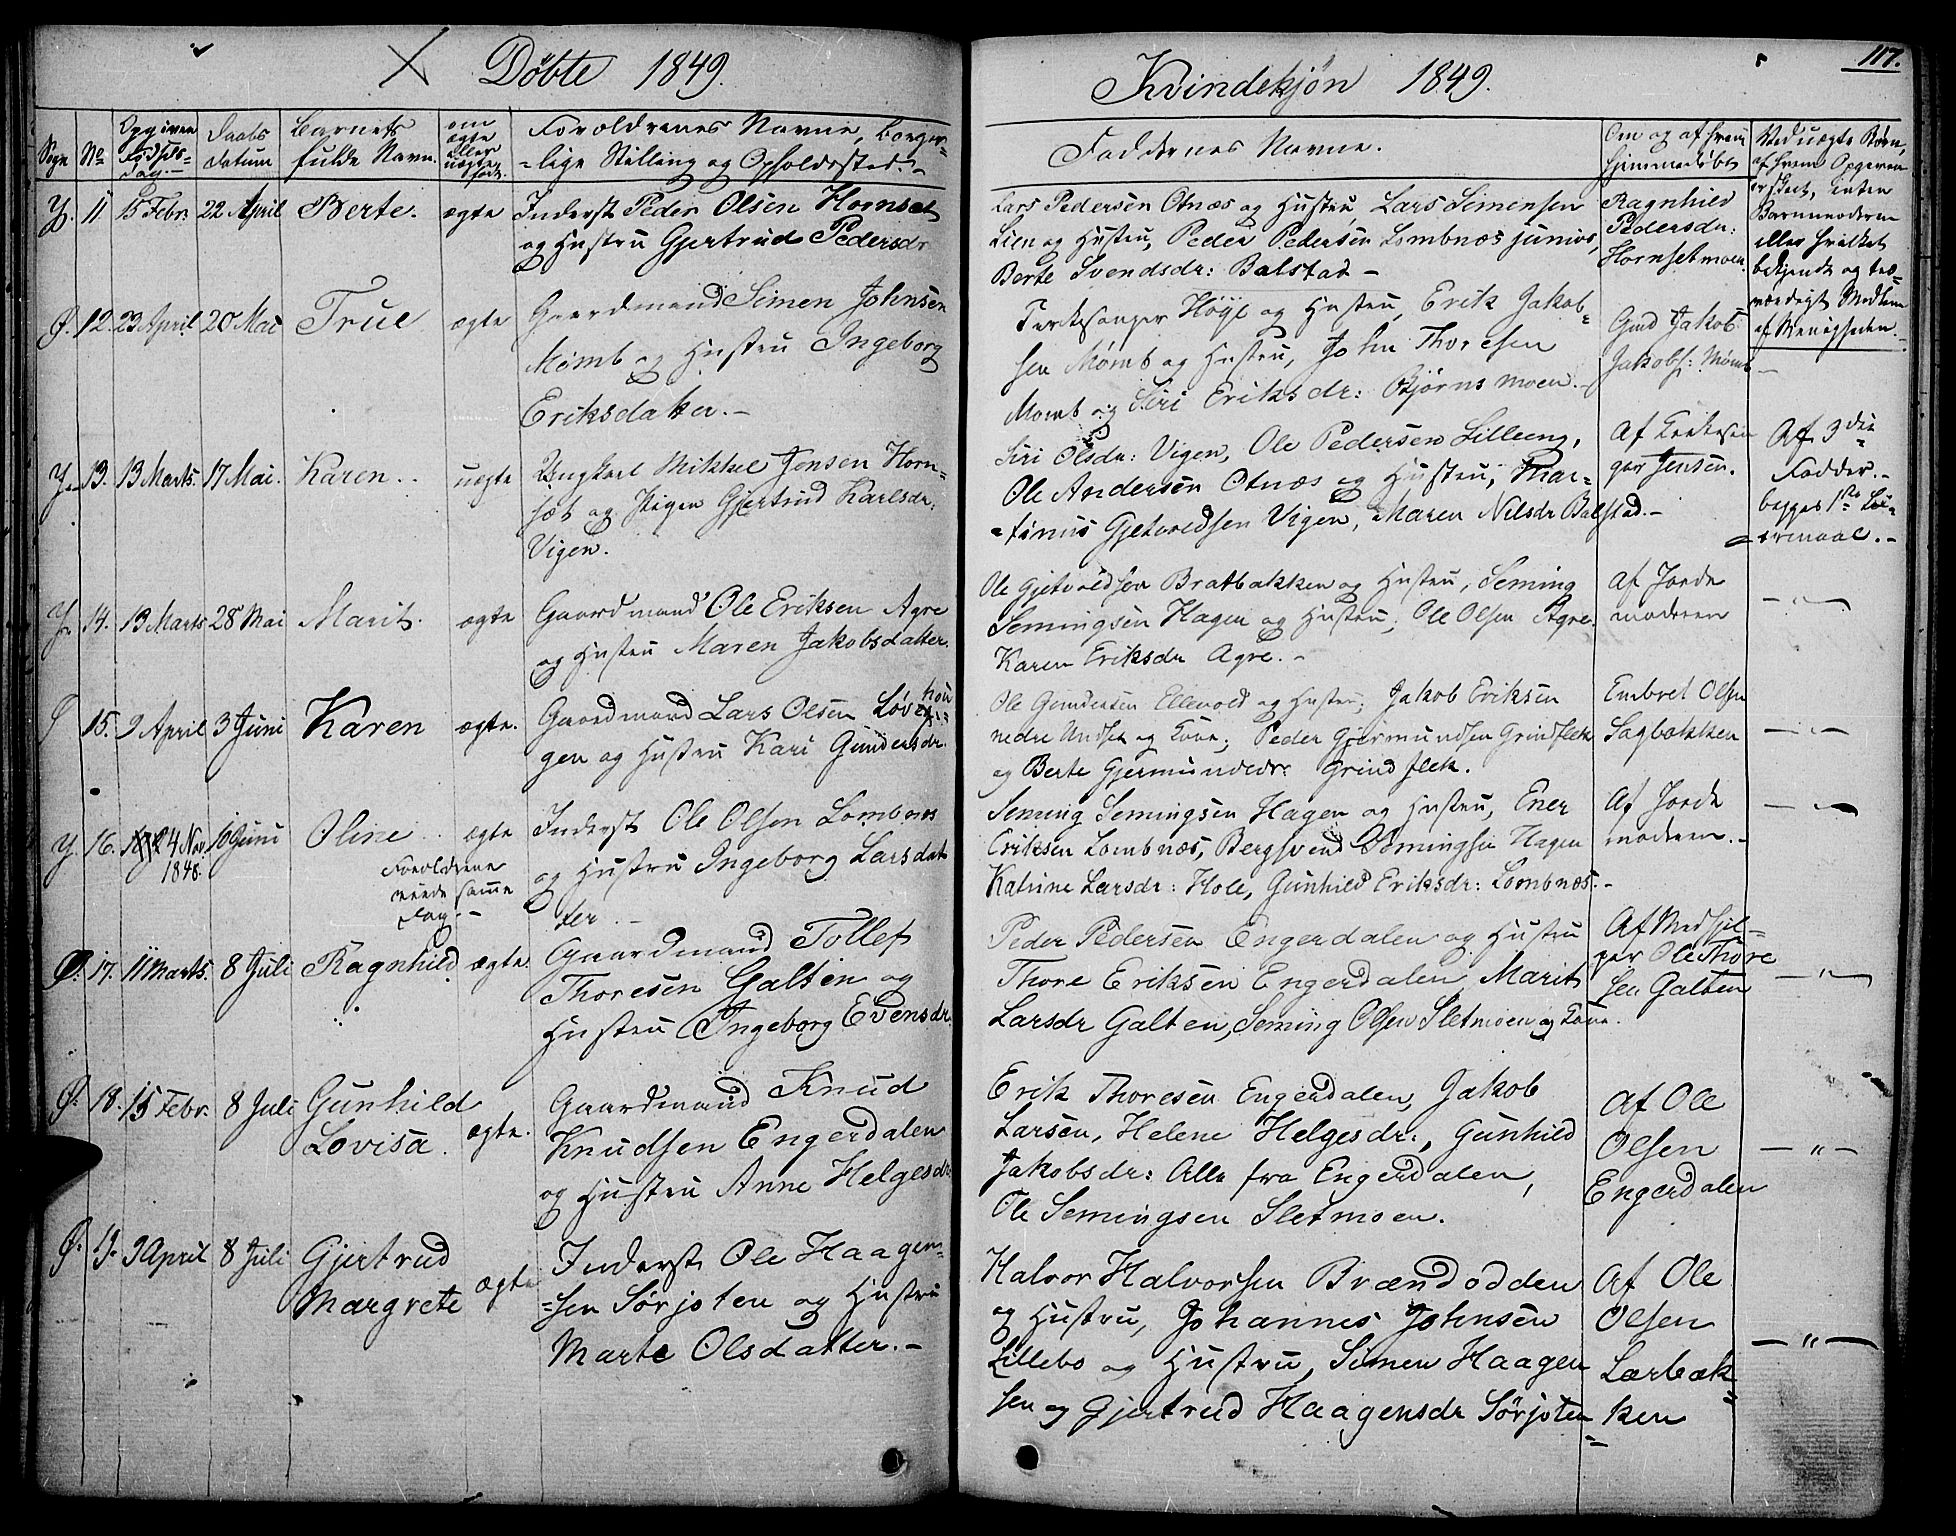 Døbte 1849.
Sogn
No
Opgiven Fødsels-Dag.
Daabs datum
Barnets fulde Navn.
om ægte eller uægte født.
Forældrenes Navne, borger-
-lige Stilling og Opholdssted.
Y. 11. 15 Febr. 22 April Berte. ægte Inderst Peder Olsen Hornset
og Hustru Gjertrud Pedersdr
Ø. 12. 23 April 20 Mai True ægte Gaardmand Simen Johnsen
Momb og Hustru Ingeborg
Eriksdatter.-
Y. 13. 13 Marts. 17 Mai. Karen. uægte Ungkarl Mikkel Jensen Horn-
set og Pigen Gjertrud Karlsdr.
Vigen.
Y. 14. 13 Marts 28 Mai Marit. ægte Gaardmand Ole Eriksen Agre
og Hustru Maren Jakobsdatter.
Ø 15. 9 April 3 Juni Karen ægte. Gaardmand Lars Olsen
gen og Hustru Kari Gundersdr.
Y. 16. 4 Nov. 1848. 10 Juni Oline ægte Inderst Ole Olsen Lombnæs
Forældrene viede samme Dag.-
og Hustru Ingeborg Larsdat
ter.-
Ø. 17. 11 Marts. 8 Juli Ragnhild ægte. Gaardmand Tollef
Thoresen Galten og
Hustru Ingeborg Evensdr.
Ø. 18. 15 Febr. 8 Juli Gunhild Lovisa. ægte. Gaardmand Knud
Knudsen Engerdalen
og Hustru Anne Helgesdr
Ø. 19. 9 April 8 Juli Gjertrud Margrete ægte Inderst Ole Haagen-
-sen Sørjoten og Hustru
Marte Olsdatter.-
Kvindekjøn 1849.
117.
Faddernes Navne.
Om og af hvem hjemmedøbt
Ved uægte Børn,
af hvem Opgiven
er skeet, enten
Barnmoderen
eller hvilket
bekjendt og tro-
værdigt Medlem
af Menigheden.
Lars Pedersen Otnæs og Hustru Lars Simensen
Lien og Hustru, Peder Pedersen Lombnæs junior,
Berte Svendsdr: Balstad -
Ragnhild
Pedersdr:
Hornsetmoen.
Kirkesanger Høye og Hustru, Erik Jakob-
sen Momb og Hustru, John Thoresen
Momb og Siri Eriksdr: Bjørnsmoen.-
Gmd Jakob
Jakobs: Momb
Siri Olsdr: Vigen, Ole Pedersen Lilleeng,
Ole Andersen Otnæs og Hustru, Mar-
-tinus Gjetvedsen Vigen, Maren Nilsdr Balstad.-
Af Kirkesan
ger Jensen.
Af 3die
Fadder.-
begges 1ste Lei-
ermaal.-
Ole Gjetvoldsen Bratbakken og Hustru, Seming
Semingsen Hagen og Hustru, Ole Olsen Agre.
Karen Eriksdr Agre.-
Af Jorde
moderen
- " -
Ole Gundersen Ellevold og Hustru; Jakob Eriksen
nedre Undset og Kone; Peder Gjermundsen Grindflek
og Berte Gjermundsdr: Grindflek.
Embret Olsen
Sagbakken
- " -
Seming Semingsen Hagen og Hustru, Ener
Eriksen Lombnæs, Bergsvend Semingsen Hagen
Katrine Larsdr: Hole, Gunhild Eriksdr: Lombnæs.-
Af Jorde
moderen.-
- " -
Peder Pedersen Engerdalen og Hustru
Thore Eriksen Engerdalen, Marit
Larsdr Galten, Seming Olsen Sletmoen og Kone.
Af Medhjel-
per Ole Thore
sen Galten
- " -
Erik Thoresen Engerdalen, Jakob
Larsen, Helene Helgesdr., Gunhild
Jakobsdr: Alle fra Engerdalen,
Ole Semingsen Sletmoen.
Af Ole
Olsen
Engerdalen
- " -
Halvor Halvorsen Brændodden
og Hustru, Johannes Johnsen
Lillebo og Hustru, Simen Haagen
sen og Gjertrud Haagensdr Sørjoten
Af Ole
Olsen
Lærbæk-
ken
- " -